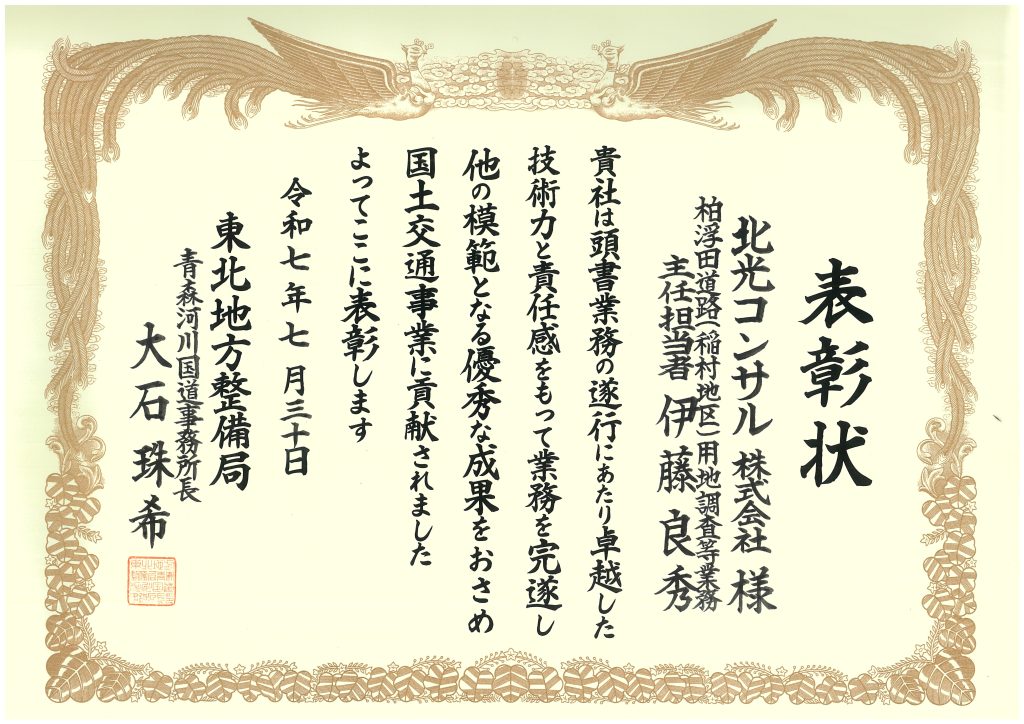 表彰状
北光コンサル 株式会社 様
柏浮田道路(稲村地区)用地調査等業務
主任担当者 伊藤 良秀
貴社は頭書業務の遂行にあたり卓越した
技術力と責任感をもって業務を完遂し
他の模範となる優秀な成果をおさめ
国土交通事業に貢献されました
よってここに表彰します
令和七年七月三十日
東北地方整備局
青森河川国道事務所長
大石珠希